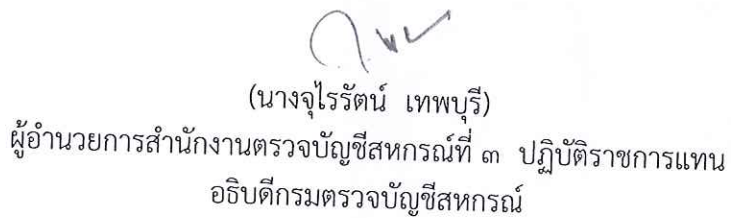 (นางจุไรรัตน์  เทพบุรี)
ผู้อำนวยการสำนักงานตรวจบัญชีสหกรณ์ที่ ๓  ปฏิบัติราชการแทน
อธิบดีกรมตรวจบัญชีสหกรณ์